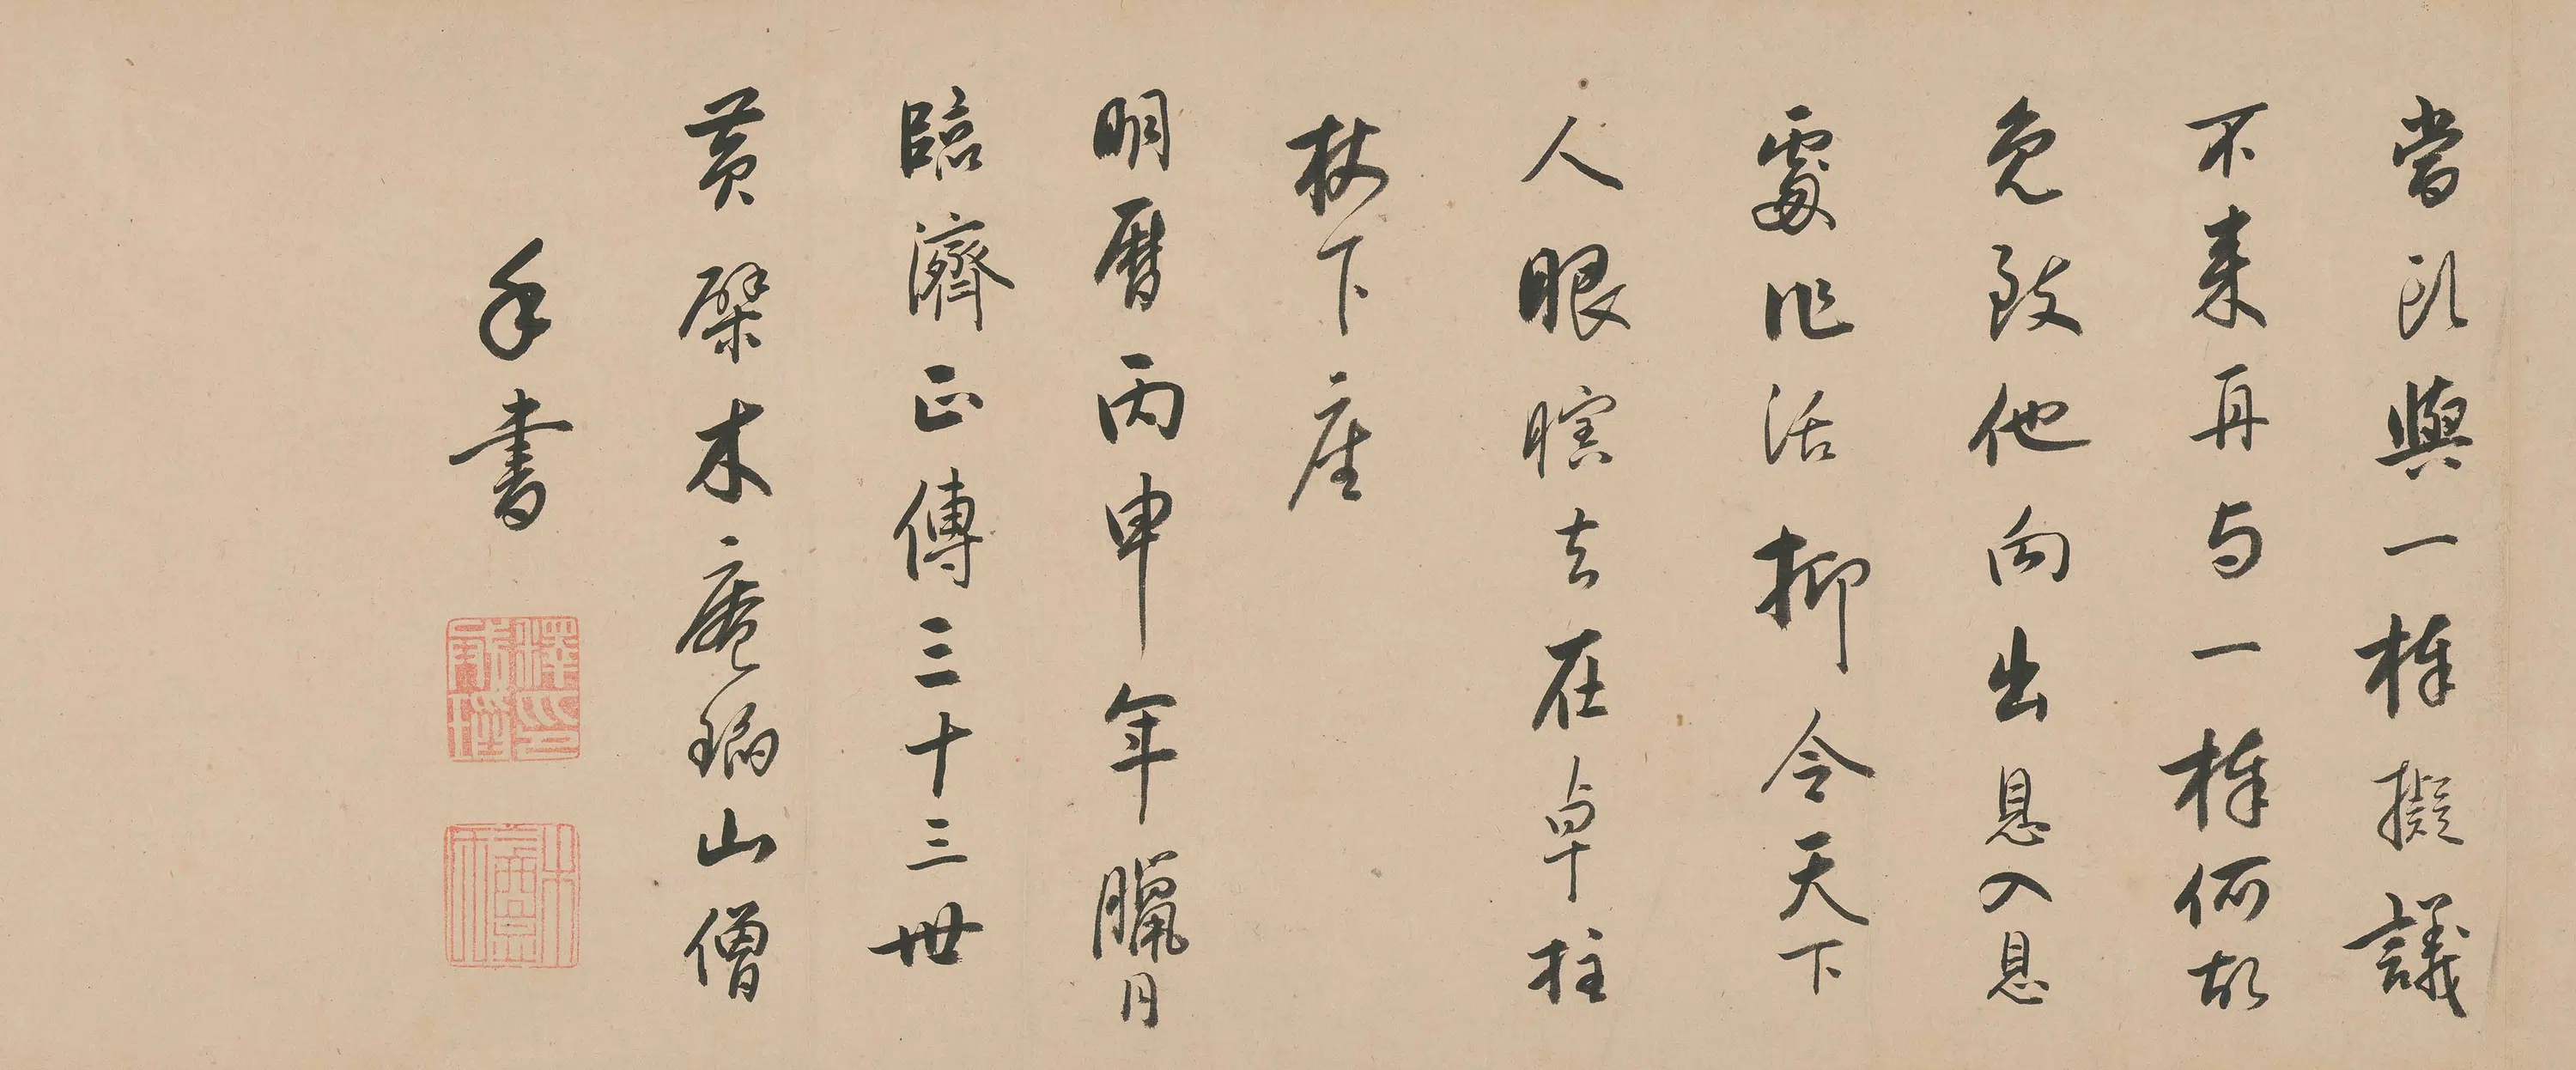 當頭與一棒擬議
不来再与一棒何故
免致他向出息入息
處作活抑令天下
人眼瞎去在卓柱
杖下座
明曆丙申年臘月
臨濟正傳三十三世
黃檗木庵瑫山僧
手書